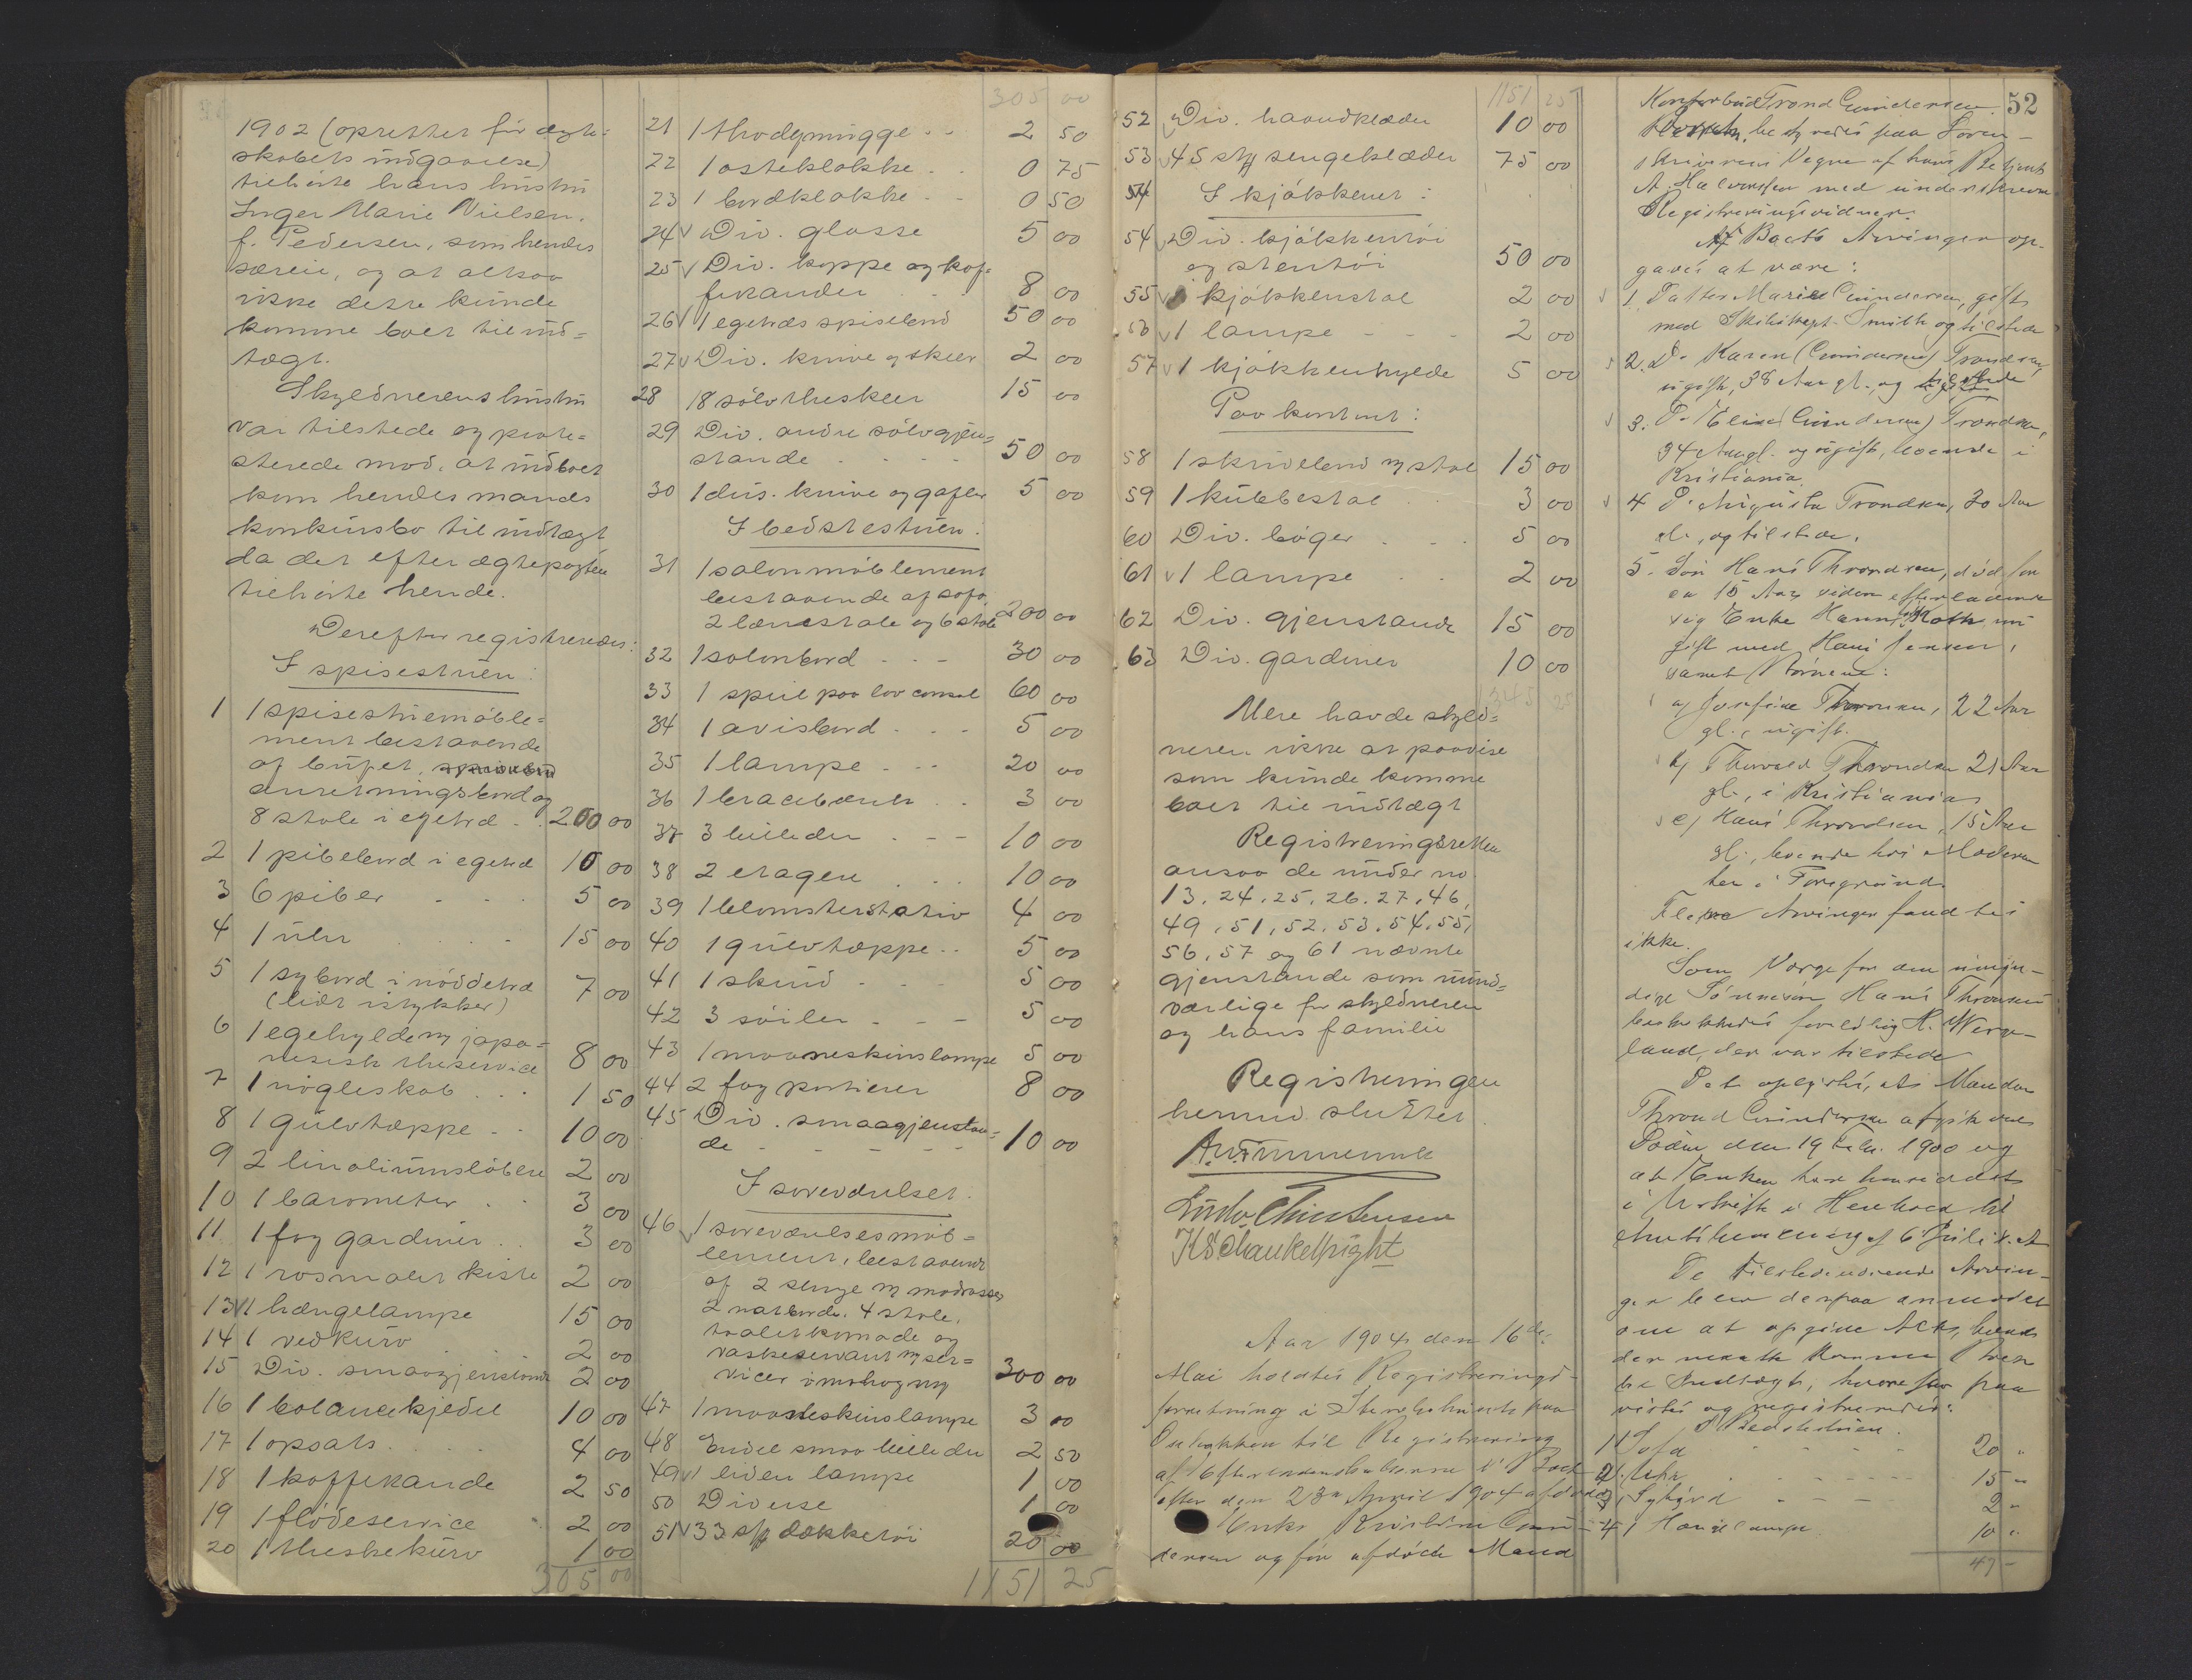 1902 (oprettet før ægte=
skabets indgaaelse)
tilhørte hans hustru
Inger Marie Nielsen,
f. Pedersen, som hendes
særeie, og at altsaa
ikke dette kunde
komme boet til ind=
tægt.
Skyldnerens hustru
var tilstede og prote=
sterede mod, at indboet
kom hendes mands
konkursbo til indtægt
da det efter ægtepagten
tilhørte hende.
Derefter registreredes:
I spisestuen:
1 1 spisestuemøble=
ment bestaaende
af buffet,
anretningsbord og
8 stole i egetræ . . 200 00
2 1 pibebord i egetræ 10 00
3 6 piber . . . 5 00
4 1 uhr . . . 15 00
5 1 sybord i nøddetræ
(lidt istykker) 7 00
6 1 egehylde m japa=
nesisk theservice 8 00
7 1 nøgleskab . . . 1 50
8 1 gulvtæppe . . 10 00
9 2 linoliumsløbere 2 00
10 1 barometer . . 3 00
11 1 fag gardiner . . 3 00
12 1 rosmalet kiste 2 00
13 1 hængelampe 15 00
14 1 vedkurv . 2 00
15 Div. smaagjenstande 2 00
16 1 balancekjedel 10 00
17 1 opsats . . . . 4 00
18 1 kaffekande 2 50
19 1 flødeservice 2 00
20 1 theskekurv 1 00
305 00
305 00
21 1 thedymugge . . 2 50
22 1 osteklokke . . 0 75
23 1 bordklokke . . 0 50
24 Div. glasse 5 00
25 Div. koppe og kaf=
fekander . . 8 00
26 1 egetræs spisebord 50 00
27 Div. knive og skeer 2 00
28 18 sølv theskeer 15 00
29 Div. andre sølvgjen=
stande . . . . 50 00
30 1 dus. knive og gafler 5 00
I bedstestuen:
31 1 salonmøblement
bestaaende af sofa,
2 lænestole og 6 stole 200 00
32 1 salonbord . . . 30 00
33 1 speil paa lav consol 60 00
34 1 avisbord . . . 5 00
35 1 lampe . . . 20 00
36 1 bracebærer . . 3 00
37 3 billeder . . . 10 00
38 2 etagere . . . 10 00
39 1 blomsterstativ 4 00
40 1 gulvtæppe . . 5 00
41 1 skind . . . 5 00
42 3 søiler . . . 5 00
43 1 maaneskinslampe 5 00
44 2 fag portierer 8 00
45 Div. smaagjenstan=
de . . . . . 10 00
I soveværelset:
46 1 soveværelsesmøb=
lement, bestaaende
af 2 senge m madrasser
2 natborde, 4 stole,
toaletkomode og
vaskeservant m ser=
vicer i mahogny 300 00
47 1 maaneskinslampe 3 00
48 Endel smaa billeder 2 50
49 1 liden lampe 1 00
50 Diverse 1 00
51 33 stk dækketøi 20 00
1151 25
1151 25
52 Div. haandklæder 10 00
53 45 stk sengeklæder 75 00
54 I kjøkkenet:
54 Div. kjøkkentøi
og stentøi 50 00
55 1 kjøkkenstol 2 00
56 1 lampe . . . 2 00
57 1 kjøkkenhylde 5 00
Paa kontoret:
58 1 skrivebord m stol 15 00
59 1 kubbestol . 3 00
60 Div. bøger . . . 5 00
61 1 lampe . . 2 00
62 Div. gjenstande 15 00
63 Div. gardiner 10 00
1345 25
Mere havde skyld=
neren ikke at paavise
som kunde komme
boet til indtægt
Registreringsretten
ansaa de under no.
13, 24, 25, 26, 27, 46,
49, 51, 52, 53, 54, 55,
56, 57 og 61 nævnte
gjenstande som uund=
værlige for skyldneren
og hans familie
Registreringen
hermed sluttet.
Ludv. Christensen
K Schanke
Aar 1904 den 16de
Mai holdtes Registrerings-
forretning i Stenholmen paa
til Registrering
af Efterladenskaberne i Boet
efter den 23de April 1904 afdøde
Enke, Kristine Gun=
dersen og før afdøde Mand
52
Kontorbud Trond Gundersen.
Retten betjentes paa Soren-
skriverens Vegne af hans Betjent
A. Halvorsen med underskrevne
Registreringsvidner.
Af Boets Arvinger op-
gaves at være:
1. Datter Marie Gundersen, gift
med Skibskapt. Smith og tilstede
2. D. Karen (Gundersen) Trondsen,
ugift, 38 Aar gl., og tilstede
3. D. Elise (Gundersen) Trondsen,
34 Aar gl. og ugift, boende i
Kristiania.
4 D. Augusta Trondsen, 30 Aar
gl., og tilstede.
5. Søn Hans Throndsen, død for
ca 15 Aar siden efterladende
sig Enke Hanna Roth, nu
gift med Hans Jensen,
samt Børnene:
a) Josefine Thronsen, 22 Aar
gl., ugift.
b) Thorvald Throndsen 21 Aar
gl., i Kristiania
c) Hans Throndsen, 15 Aar
gl., boende hos Moderen
her i Porsgrund.
Flere Arvinger fandtes
ikke.
Som Værge for den umyn-
dige Sønnesøn Hans Thronsen
beskikkedes foreløbig H. Werge-
land, der var tilstede
Det oplystes, at Manden
Thrond Gundersen afgik ved
Døden den 19 Febr. 1900 og
at Enken har hensiddet
i Uskifte i Henhold til
Anmeldelse af 6 Juli s. A.
De tilstedeværende Arvin-
ger blev derpaa anmodet
om at opgive Alt, hvad
der maatte komme Boet
til Indtægt, hvorefter paa
vistes og registreredes:
I Bedstestuen.
1 1 Sofa 20 "
2 1 Uhr . . . . . . 15 "
3 1 Sybord . . . 2 "
4 1 Hængelampe 10 "
47 -